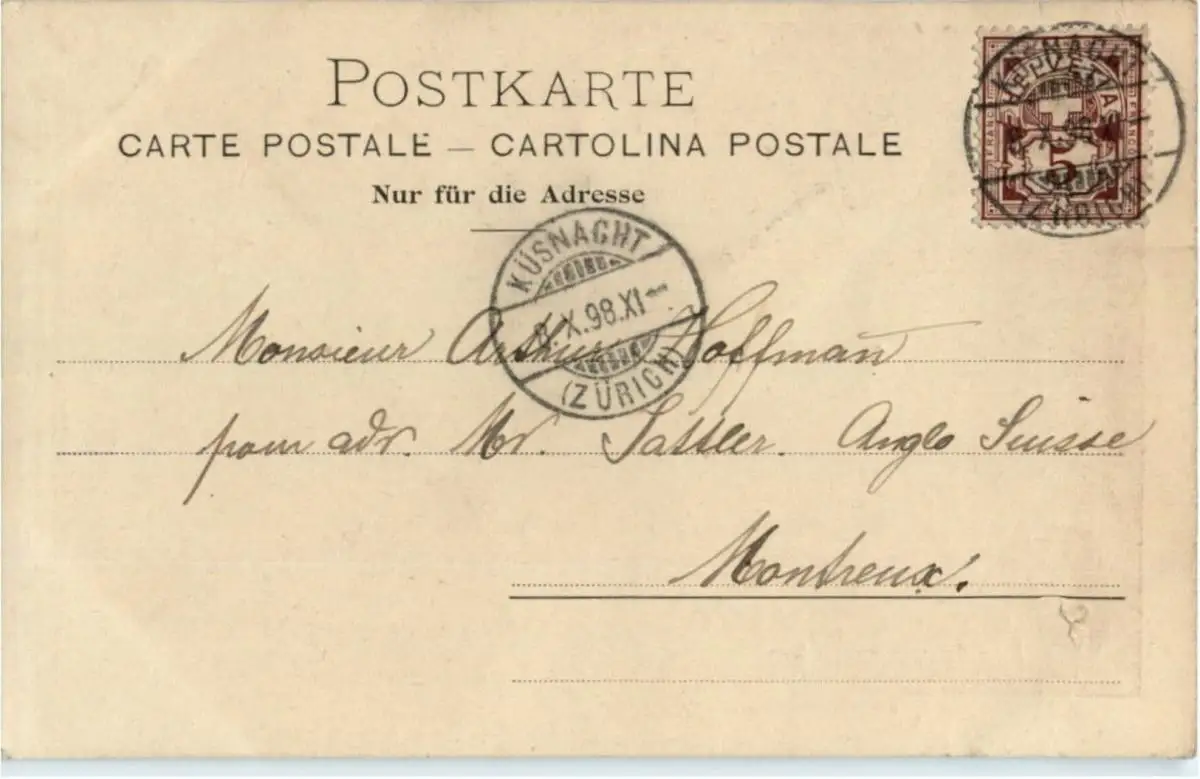 POSTKARTE
CARTE POSTALE – CARTOLINA POSTALE
Nur für die Adresse
KÜSNACHT
8.X.98.XI–
(ZÜRICH)
5
FRANCO
Monsieur Arthur Hoffman
pour adr. Mr. Sattler. Anglo Suisse
Montreux.